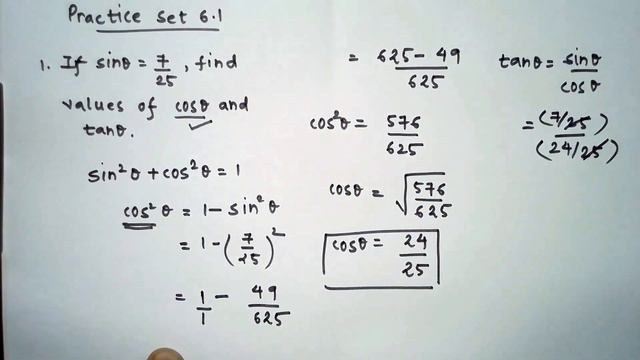 Practice Set 6.1
1. If sinθ = 7/25, find
values of cosθ and
tanθ.
sin²θ + cos²θ = 1
cos²θ = 1 - sin²θ
= 1 - (7/25)²
= 1/1 - 49/625
= 625 - 49/625
cos²θ = 576/625
cosθ = √576/625
cosθ = 24/25
tanθ = sinθ/cosθ
= (7/25)/(24/25)